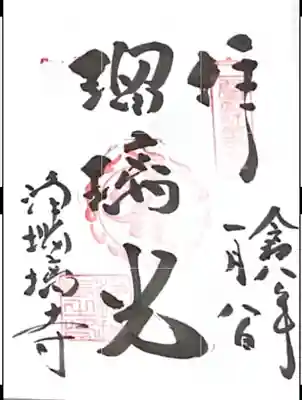 拝
令八年
一月八日
瑠璃光
浄瑠璃寺